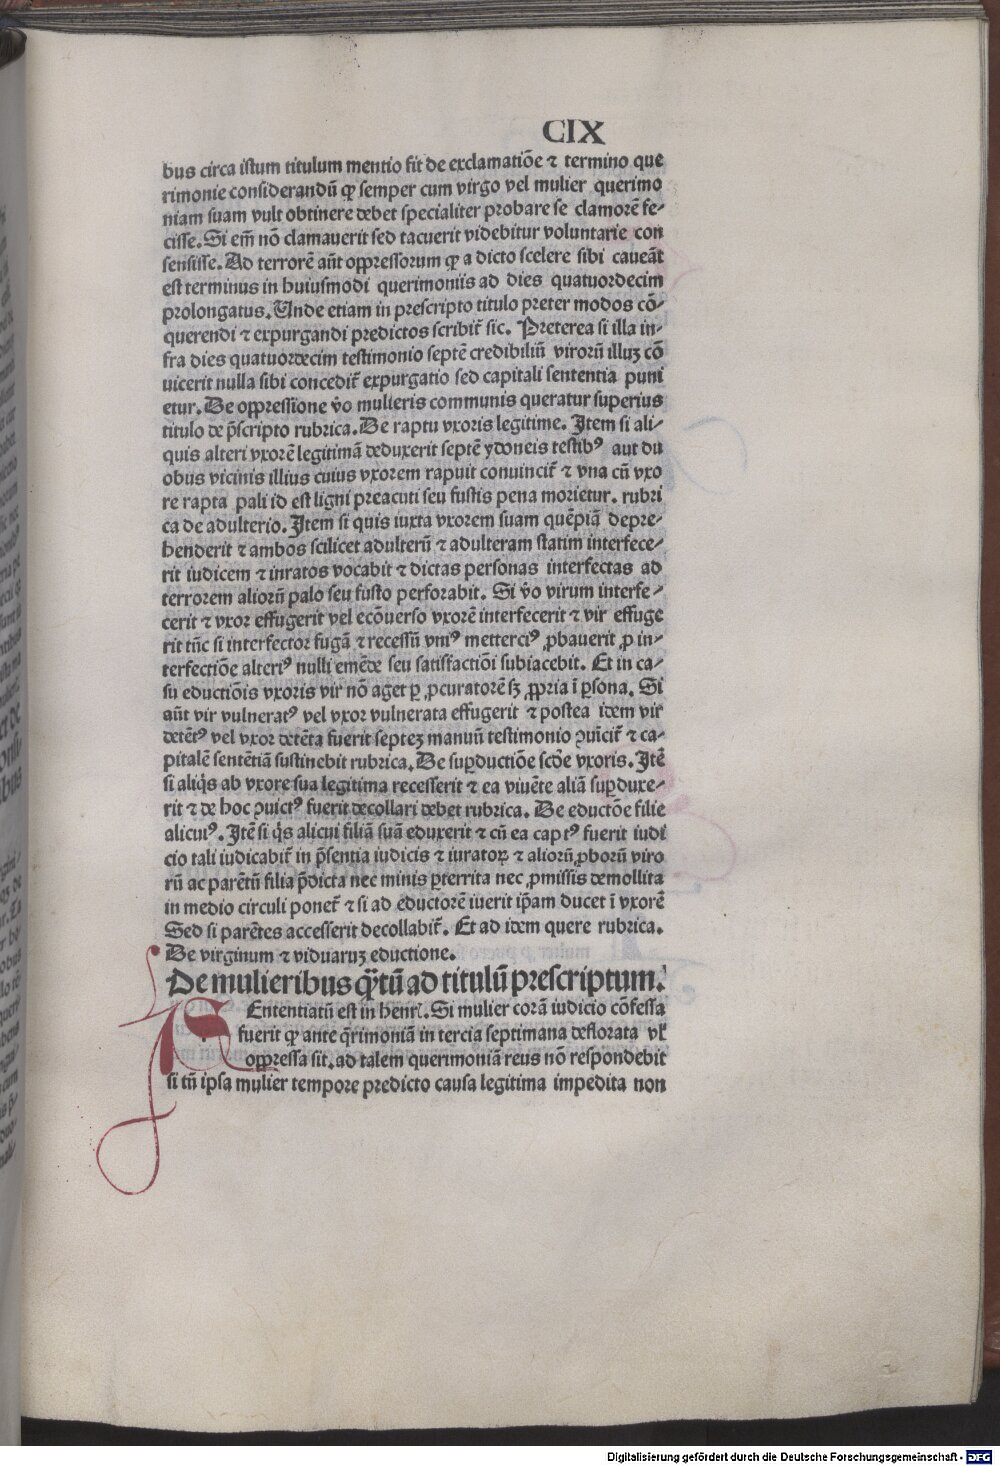 CIX
bus circa istum titulum mentio fit de exclamatiōe ⁊ termino que
rimonie considerandū ꝙ semper cum virgo vel mulier querimo
niam suam vult obtinere debet specialiter probare se clamorē fe-
cisse. Si em̄ nō clamauerit sed tacuerit videbitur voluntarie con
sensisse. Ad terrorē aūt oppressorum ꝙ a dicto scelere sibi caueāt
est terminus in huiusmodi querimoniis ad dies quatuordecim
prolongatus. Unde etiam in prescripto titulo preter modos cō-
querendi ⁊ expurgandi predictos scribit̄ sic. Preterea si illa in-
fra dies quatuordecim testimonio septē credibiliū virorū illuꝫ cō
uicerit nulla sibi concedit̄ expurgatio sed capitali sententia puni
etur. De oppressione v̄o mulieris communis queratur superius
titulo de p̄scripto rubrica. De raptu vxoris legitime. Item si ali-
quis alteri vxorē legitimā deduxerit septē ydoneis testibꝰ aut du
obus vicinis illius cuius vxorem rapuit conuincit̄ ⁊ vna cū vxo
re rapta pali id est ligni preacuti seu fustis pena morietur. rubri
ca de adulterio. Item si quis iuxta vxorem suam quēpiā depre-
henderit ⁊ ambos scilicet adulterū ⁊ adulteram statim interfece-
rit iudicem ⁊ inratos vocabit ⁊ dictas personas interfectas ad
terrorem aliorū palo seu fusto perforabit. Si v̄o virum interfe-
cerit ⁊ vxor effugerit vel ecōuerso vxorē interfecerit ⁊ vir effuge
rit tūc si interfector fugā ⁊ recessū vniꝰ metterciꝰ ꝓbauerit ꝓ in-
terfectiōe alteriꝰ nulli emēde seu satisfactiōi subiacebit. Et in ca-
su eductiōis vxoris vir nō aget ꝑ ꝓcuratorē sꝫ ꝓpria ī ꝑsona. Si
aūt vir vulneratꝰ vel vxor vulnerata effugerit ⁊ postea idem vir
detētꝰ vel vxor detēta fuerit septeꝫ manuū testimonio ꝯuīcit̄ ⁊ ca-
pitalē sentētiā sustinebit rubrica. De suꝑductiōe scd̄e vxoris. Itē
si aliq̇s ab vxore sua legitima recesserit ⁊ ea viuēte aliā suꝑduxe-
rit ⁊ de hoc ꝯuictꝰ fuerit decollari debet rubrica. De eductōe filie
alicuiꝰ. Itē si q̇s alicui filiā suā eduxerit ⁊ cū ea captꝰ fuerit iudi
cio tali iudicabit̄ in p̄sentia iudicis ⁊ iuratoꝝ ⁊ aliorū ꝓborū viro
rū ac parētū filia p̄dicta nec minis ꝑterrita nec ꝓmissis demollita
in medio circuli ponet̄ ⁊ si ad eductorē iuerit ip̄am ducet ī vxorē
Sed si parētes accesserit decollabit̄. Et ad idem quere rubrica.
De virginum ⁊ viduaruꝫ eductione.
De mulieribus q̄rtū ad titulū prescriptum.
SEntentiatū est in henri. Si mulier corā iudicio cōfessa
fuerit ꝙ ante q̄rimoniā in tercia septimana deflorata vl̄
oppressa sit. ad talem querimoniā reus nō respondebit
si tn̄ ipsa mulier tempore predicto causa legitima impedita non
Digitalisierung gefördert durch die Deutsche Forschungsgemeinschaft - DFG